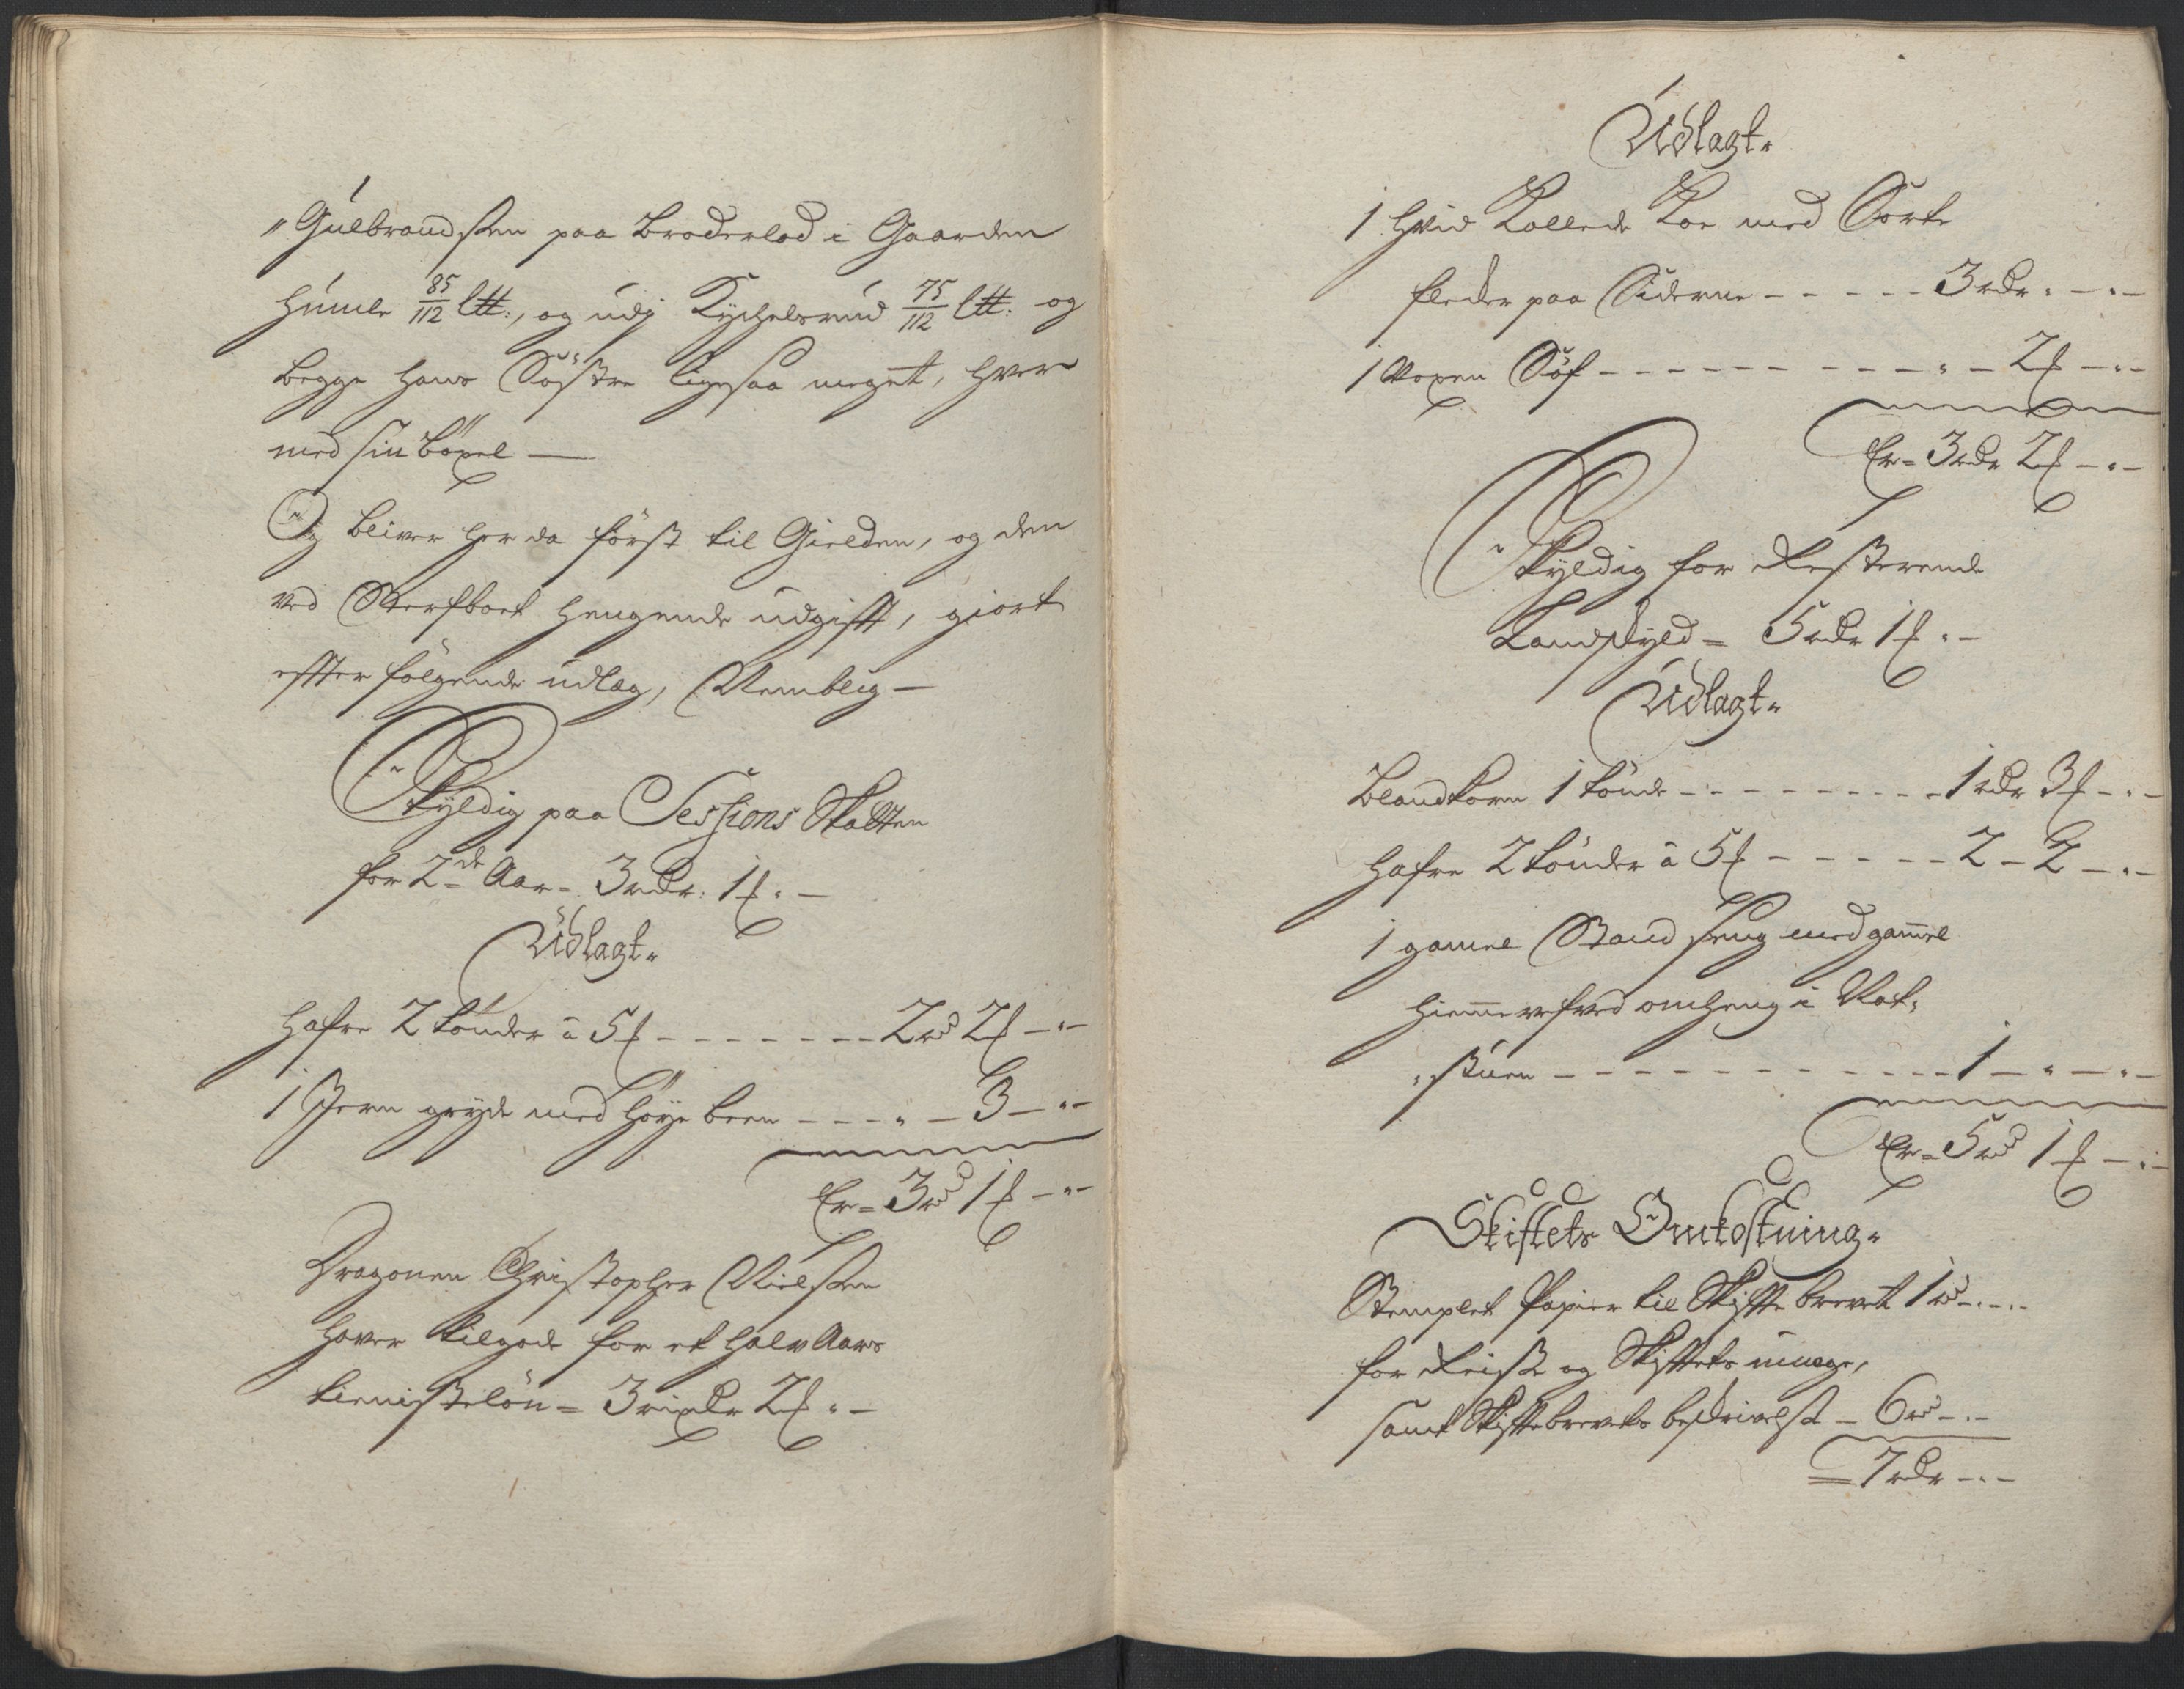 "Gulbrandsen paa broderlod i Gaarden
Humle 85/112 l℔:, og udj Kychelsrud 75/112 l℔: og
begge hans Söstre ligesaa meget, hver
med sin böxel —
Og bliver her da först til Gielden, og den
ved Sterfboet hengende udgifft, giort
effter fölgende udlæg, Nemblig —
Skyldig paa Sessions Skatten
for 2de Aar = 3 rdr: 1 f " —
Udlagt "
Hafre 2 tönder â 5 f - - - - - - - 2 rd 2 f — " —
1 Jern gryde med Höye been - - - " — 3 — " —
Er = 3 rd 1 f — " —
Dragonen Christopher Nielsen
haver tilgode for et halv Aars
tienisteløn = 3 rixdr 2 f " —
Udlagt "
1 hvid Kollede Koe med Sorte
fleder paa Siderne - - - - - 3 rdr " — " —
1 voxen Söf - - - - - - - - - - - " — 2 f — " —
Er = 3 rdr 2 f — " —
Skyldig for Resterende
Landskyld = 5 rdr 1 f " —
Udlagt "
Blandkorn 1 tönde - - - - - - - - - - 1 rdr 3 f — " —
Hafre 2 tönder â 5 f - - - - - - 2 — 2 — " —
1 gamel Stand seng med gam̅el
hiem̅evefved omheng i Nof-
" stuen - - - - - - - - - - - - - 1 — " — " —
Er = 5 rd 1 f — " —
Skiftets Omkostning "
Stemplet Papier til Skifte brevet 1 rd - " - "
for Reise og Skifftets umage,
samt Skifftebrevets beskrivelse — 6 rd — " —
= 7 rdr — " —